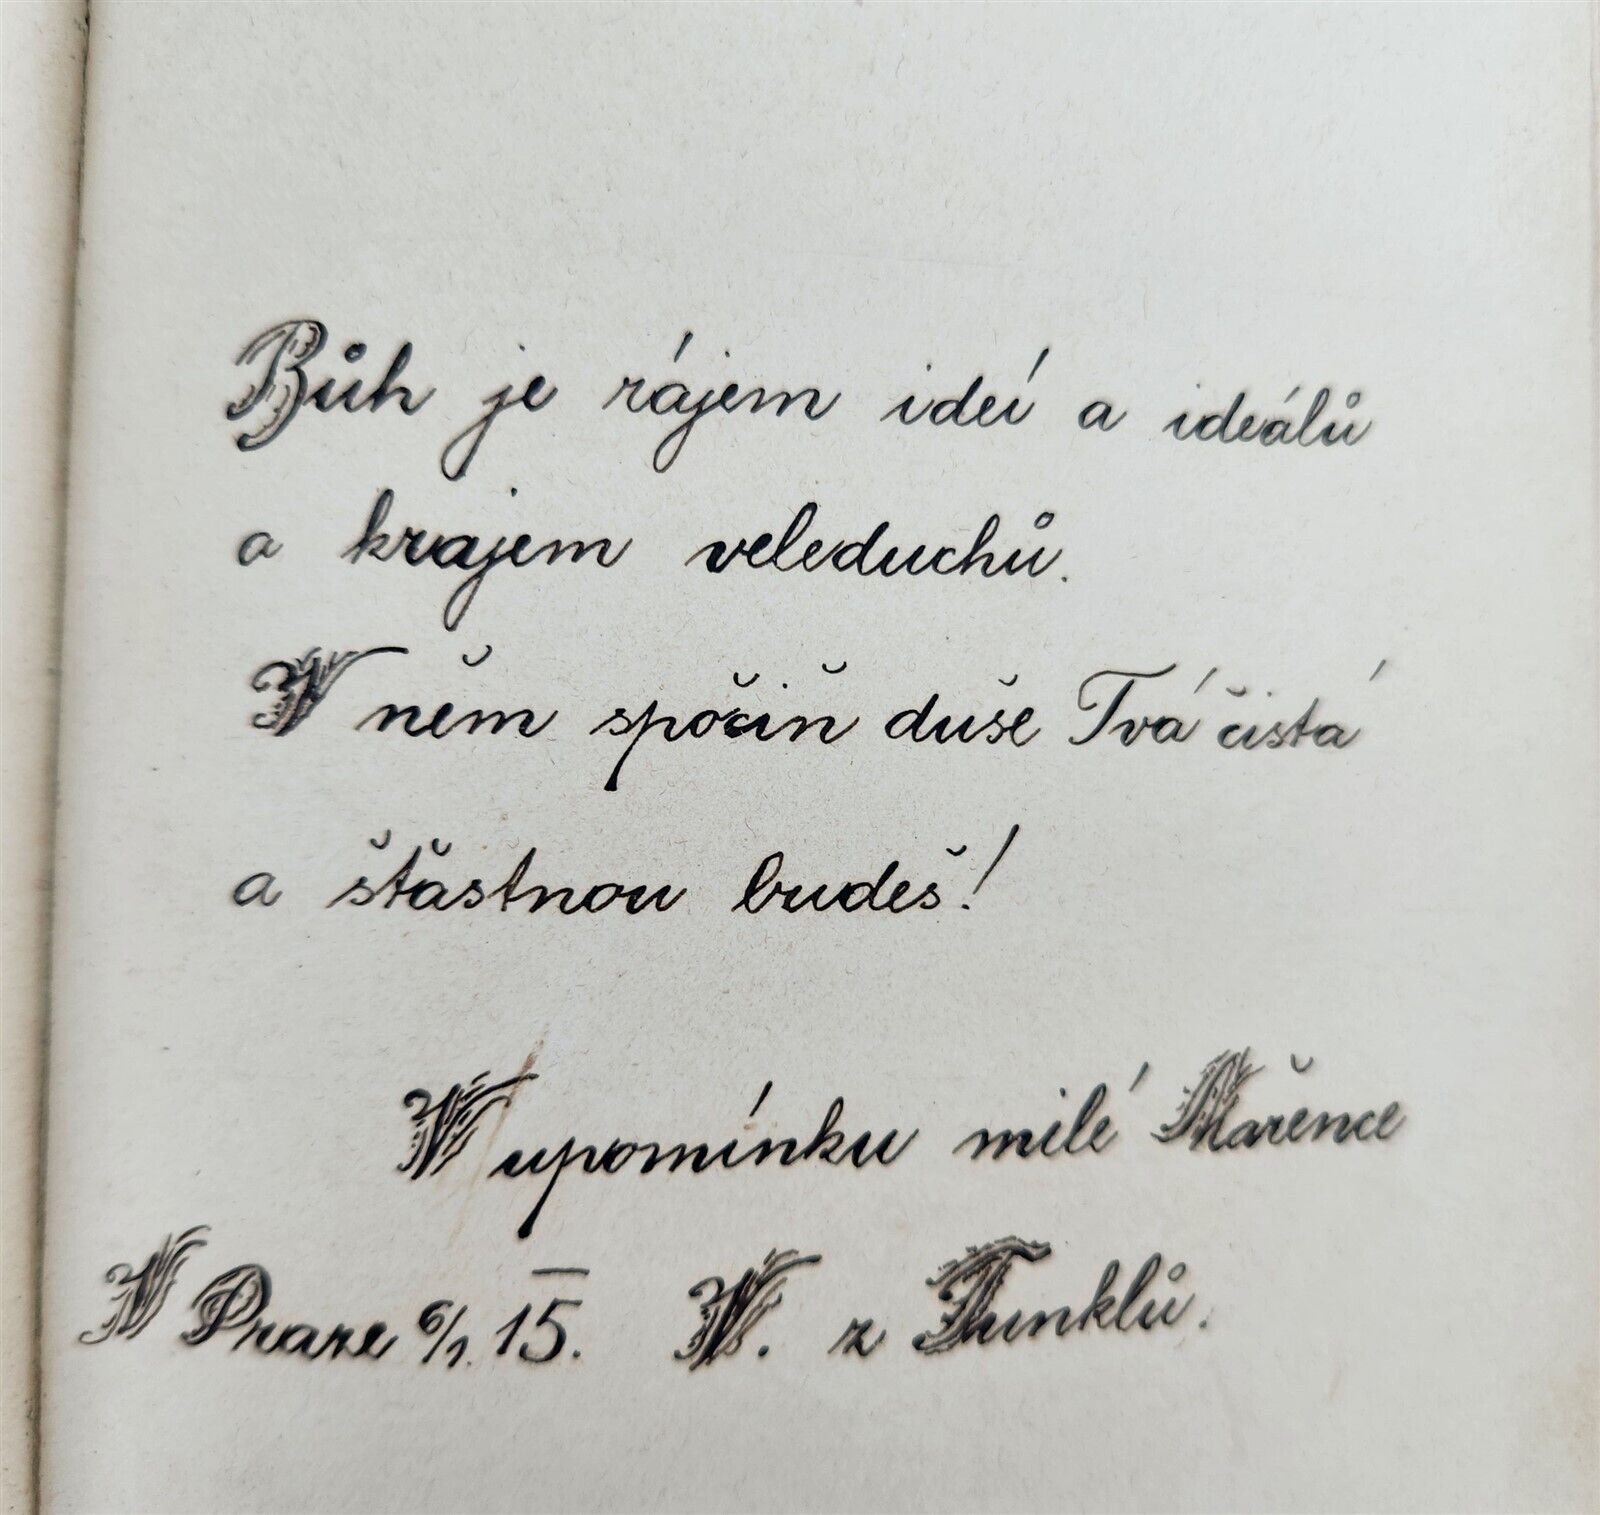 Bůh je rájem ideí a ideálů
a krajem veleduchů.
V něm spočiň duše Tvá čistá
a šťastnou budeš!
V upomínku milé Mařence
V Praze 6/1. 15. V. z Funklů.